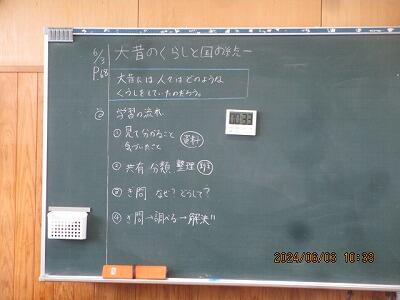 6/3
P.68
大昔のくらしと国の統一
大昔には人々はどのような
くらしをしていたのだろう。
学習の流れ
① 見て分かること 資料
気づいたこと
② 共有 分類 整理
③ ぎ問 なぜ？どうして？
④ ぎ問→調べる→解決!!
10:33
2024/06/03 10:33